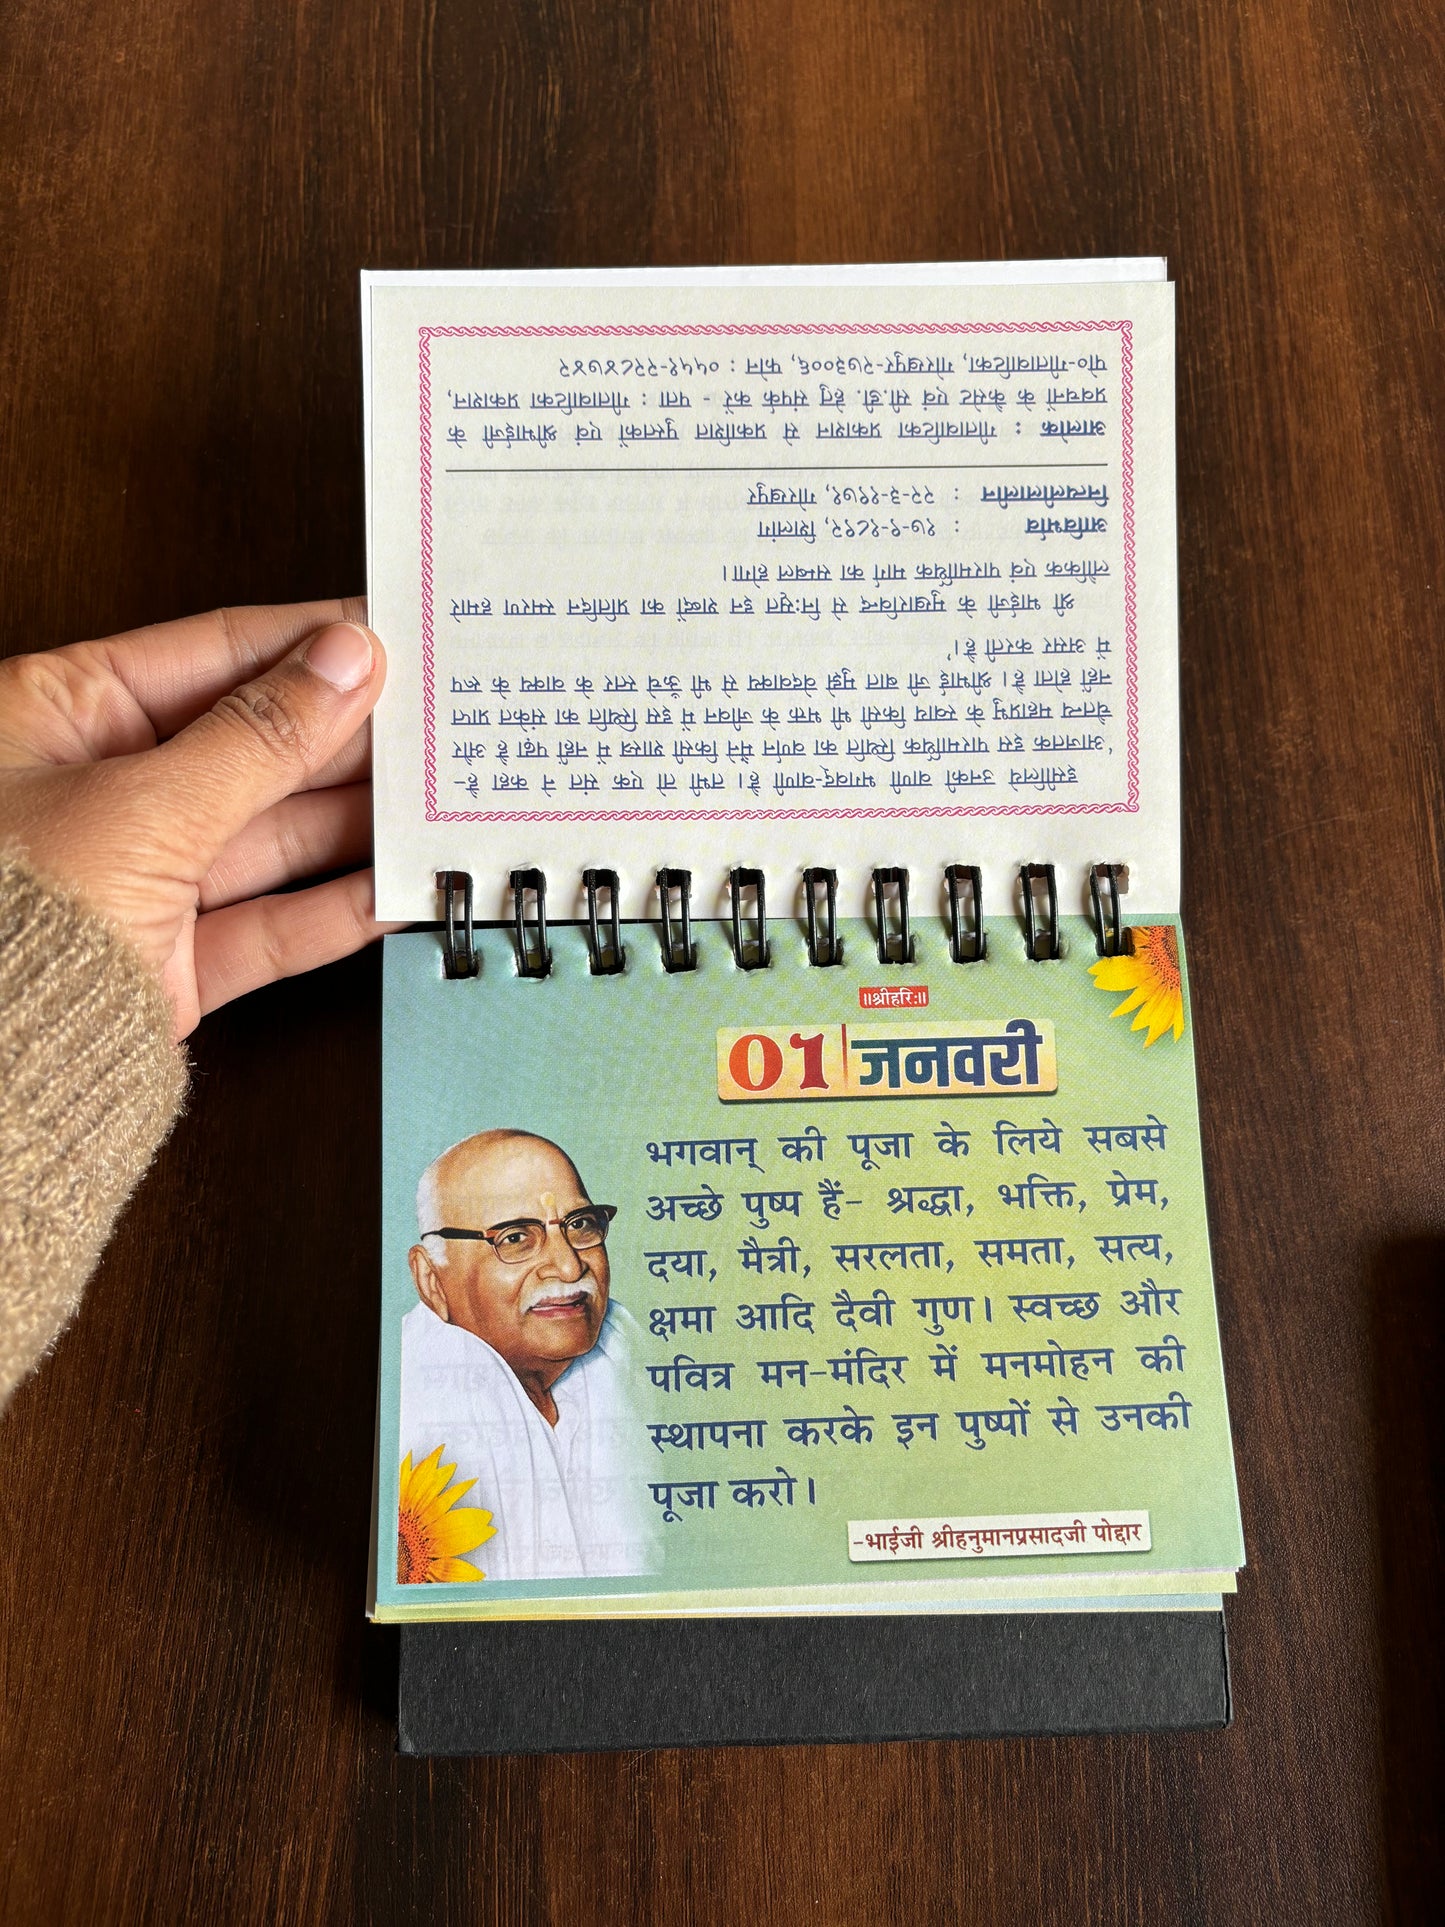 इसीलिये उनकी वाणी भगवद्-वाणी है। तभी तो एक संत ने कहा है–
'आजतक इस पारमार्थिक स्थिति का वर्णन मैंने किसी शास्त्र में नहीं पढ़ा है और
चैतन्य महाप्रभु के सिवाय किसी भी भक्त के जीवन में इस स्थिति का संकेत प्राप्त
नहीं होता है। श्रीभाई जी बात मुझे वेदवाक्य से भी ऊँचे स्तर के वाक्य के रूप
में असर करती है।'
श्री भाईजी के मुखारविन्द से निःसृत इन शब्दों का प्रतिदिन स्मरण हमारे
लौकिक एवं पारमार्थिक मार्ग का सम्बल होगा।
आविर्भाव : १७-९-१८९२, शिलांग
नित्यलीलालीन : २२-३-१९७१, गोरखपुर
आलोक : गीतावाटिका प्रकाशन से प्रकाशित पुस्तकों एवं श्रीभाईजी के
प्रवचनों के कैसेट एवं सी.डी. हेतु संपर्क करें - पता : गीतावाटिका प्रकाशन,
पो०-गीतावाटिका, गोरखपुर-२७३००६, फोन : ०५५१-२२८४७४२
॥श्रीहरिः॥
01 जनवरी
भगवान् की पूजा के लिये सबसे
अच्छे पुष्प हैं– श्रद्धा, भक्ति, प्रेम,
दया, मैत्री, सरलता, समता, सत्य,
क्षमा आदि दैवी गुण। स्वच्छ और
पवित्र मन-मंदिर में मनमोहन की
स्थापना करके इन पुष्पों से उनकी
पूजा करो।
–भाईजी श्रीहनुमानप्रसादजी पोद्दार